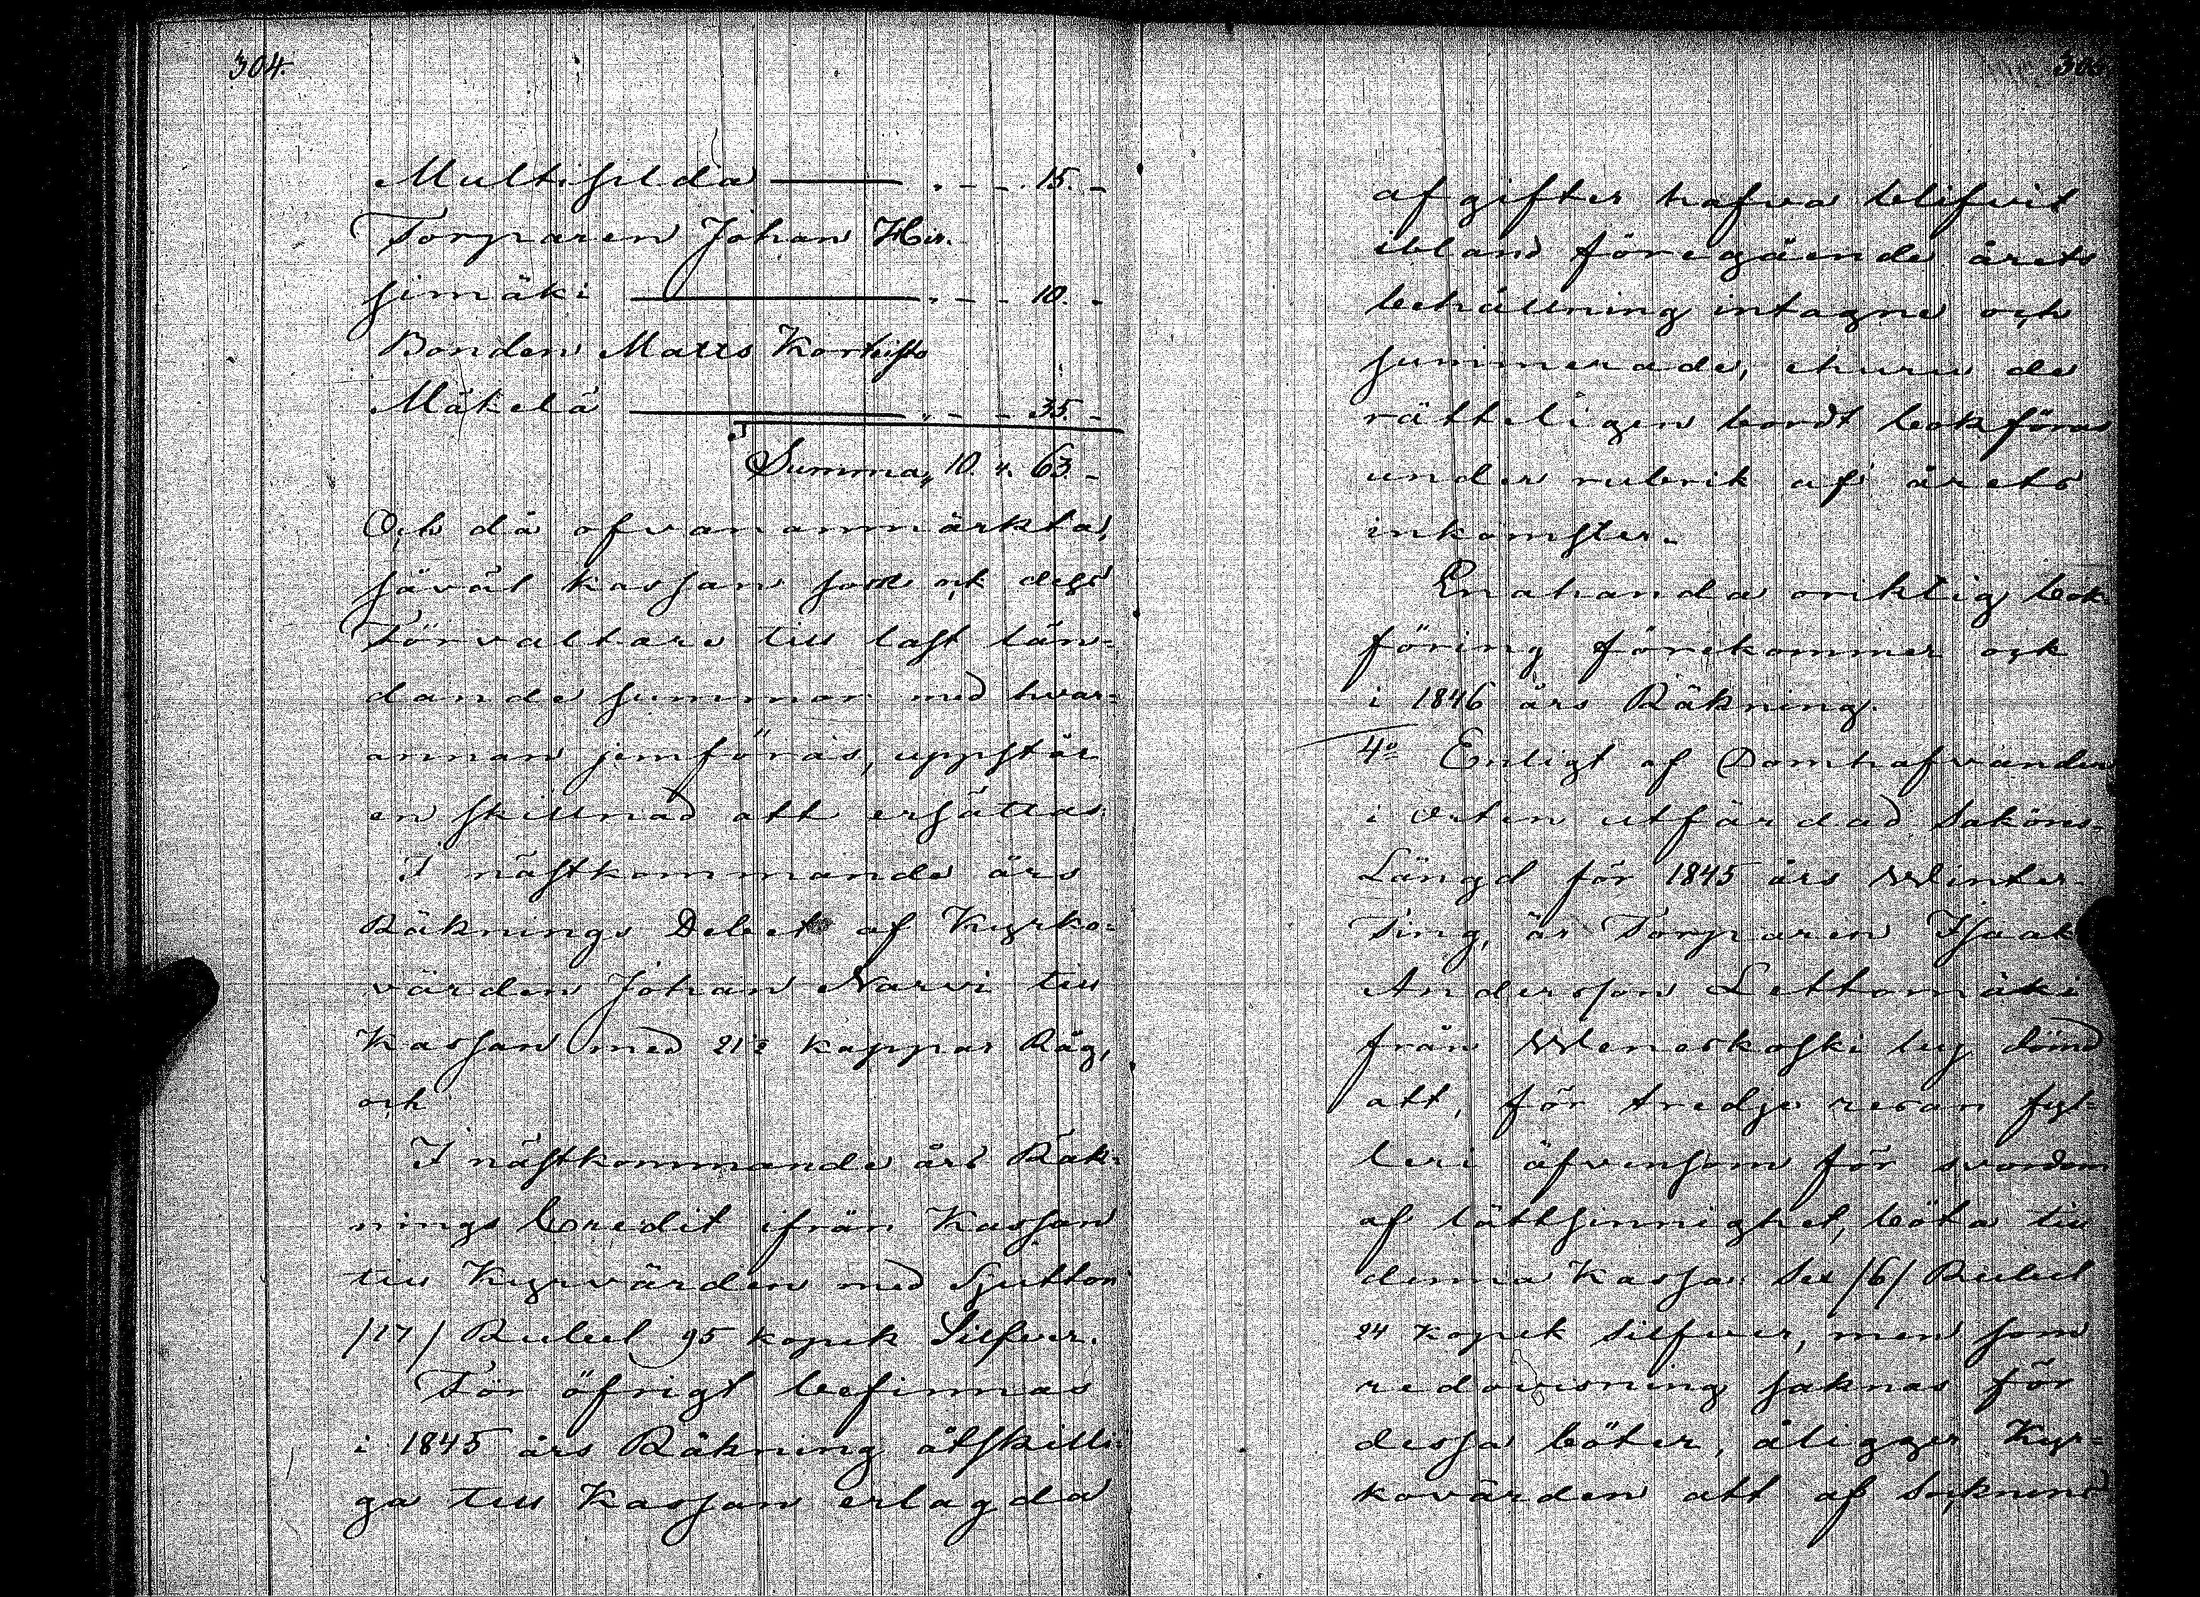 304.
Multisilda — „ - - 15. -
Torparen Johan Hir-
simäki — „ - - 10. -
Bonden Matts Kortesto
Mäkelä — „ - - 35 -
Summa „ 10. „ 63 -
Och då ofvananmärkta,
såväl kassan som ock dess
Förvaltare till last län-
dande summor med hvar-
annan jemföras, uppstår
en skillnad att ersättas:
I nästkommande års
Räknings Debet af Kyrko-
värden Johan Narvi till
Kassan med 21½ kappar Råg,
och
I nästkommande års Räk-
nings Credit ifrån Kassan
till Kyrvärden med Sjutton
/17/ Rubel 95 kopek Silfver.
För öfrigt befinnas
i 1845 års Räkning åtskilli-
ga till Kassan erlagda
305
afgifter hafva blifvit
ibland föregående årets
behållning intagne och
summerade, ehuru de
rätteligen bordt bokföras
under rubrik af årets
inkomster.
Enahanda oriktig bok-
föring förekommer ock
i 1846 års Räkning.
4o Enligt af Domhafvanden
i Orten utfärdad Saköres-
Längd för 1845 års Winter-
Ting, är Torparen Isaak
Andersson Lettomäki
från Weneskoski by dömd
att, för tredje resan fyl-
leri äfvensom för svordom
af lättsinnighet, böta till
denna Kassa Sex /6/ Rubel
24 kopek Silfver, men som
redovisning saknas för
dessa böter, åligger Kyr-
kovärden att af Soknens